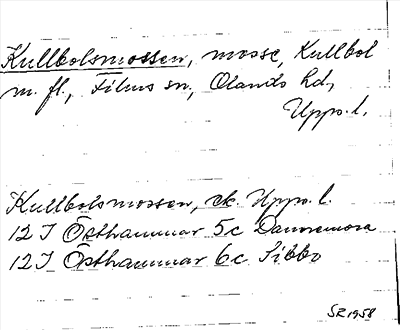 Kullbolsmossen, mosse, Kullbol
m. fl., Films sn, Olands hd,
Upps. l.
Kullbolsmossen, ek. Upps. l.
12 I Östhammar 5c Dannemora
12 I Östhammar 6c Sibbo
SR 1958